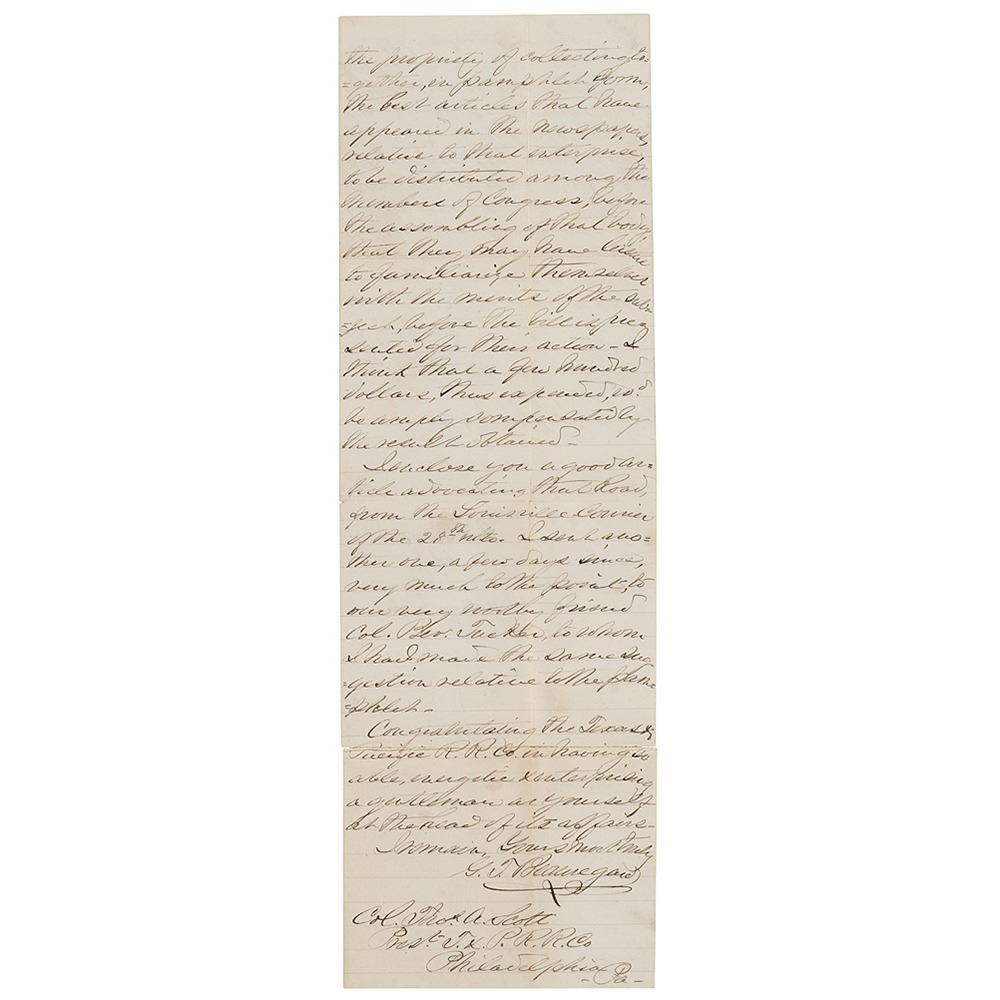 the propriety of collecting to=
=gether, in pamphlet form,
the best articles that have
appeared in the newspapers,
relative to that enterprise,
to be distributed among the
Members of Congress, before
the assembling of that body,
that they may have leisure
to familiarize themselves
with the merits of the sub=
=ject, before the bill is pre=
sented for their action – I
think that a few hundred
dollars, thus expended, wd
be amply compensated by
the result obtained –
I enclose you a good ar=
ticle advocating that Road
from the Louisville Courier
of the 28th ulto. I sent ano=
ther one, a few days since,
very much to the point, to
our very worthy friend
Col. Bev. Tucker, to whom
I had made the same sug
=gestion relative to the pam=
=phlet –
Congratulating the Texas &
Pacific R. R. Co. in having so
able, energetic & enterprising
a gentleman as yourself
at the head of its affairs –
I remain, Yours most truly
G. T. Beauregard
Col. Thos. A. Scott
Prest. T. & P. R. R. Co
Philadelphia
– Pa –